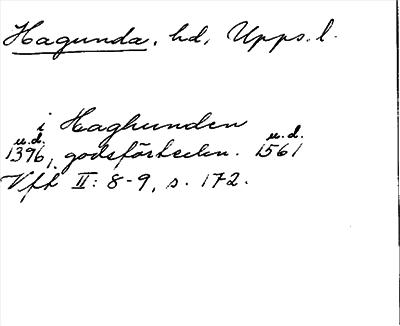 Hagunda, hd, Upps. l.
i Haghunden
u.d. u.d.
1396, godsförteckn. 1561
Vft II: 8-9, s. 172.